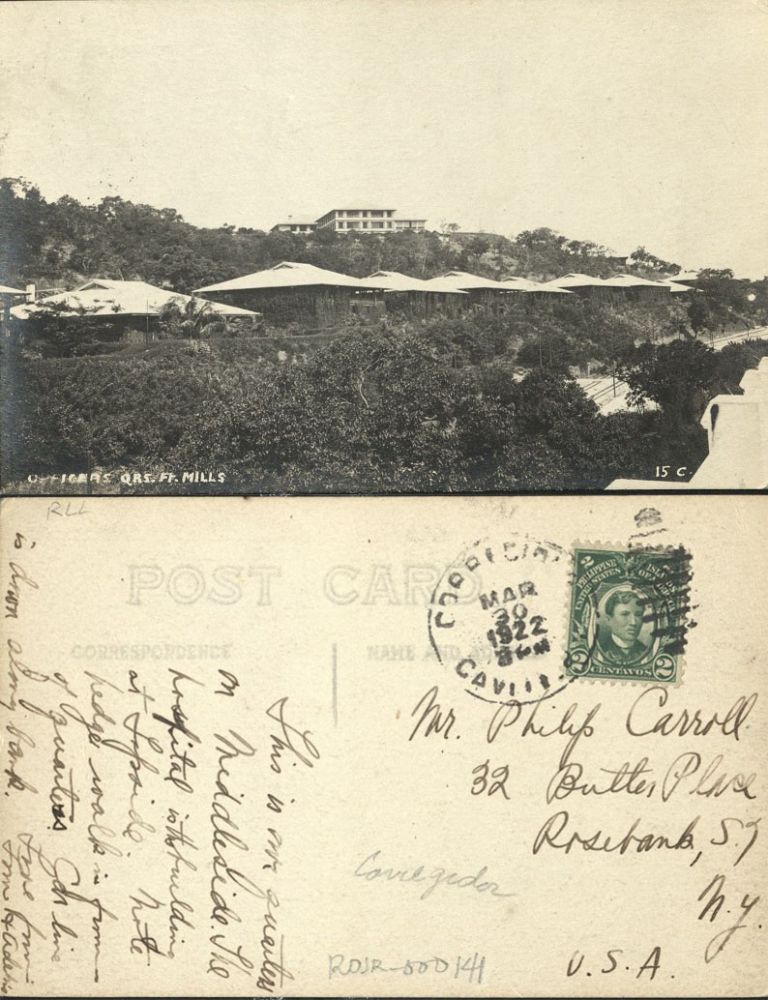 OFFICERS QRS. FT. MILLS
15 C.
RLL
POST CARD
CORRESPONDENCE
NAME AND
CORREGIDOR
MAR
30
1922
8 AM
CAVITE
PHILIPPINE ISLANDS
UNITED STATES OF
2 CENTAVOS 2
Mr. Philip Carroll
32 Butler Place
Rosebank, S.I
N.Y.
U.S.A.
Corregidor
This is our quarters
on Middleside. The
hospital is the building
at Topside. Note
hedge walk in front
of quarters. Car line
is down along bank.
Love from